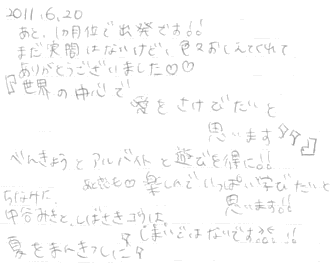 2011.6.20
あと、1カ月位で出発です!!
まだ実閒はないけど、色々おしえてくれて
ありがとうございました♡♡
『世界の中心で
愛をさけびたいと
思います!!』
べんきょうとアルバイトと遊びを得に!!
あと恋も♡楽しんでいっぱい学びたいと
思います!!
ちなみに、
中谷みきと、しばさきコウは
しまいではないです!!
夏をまんきつしに